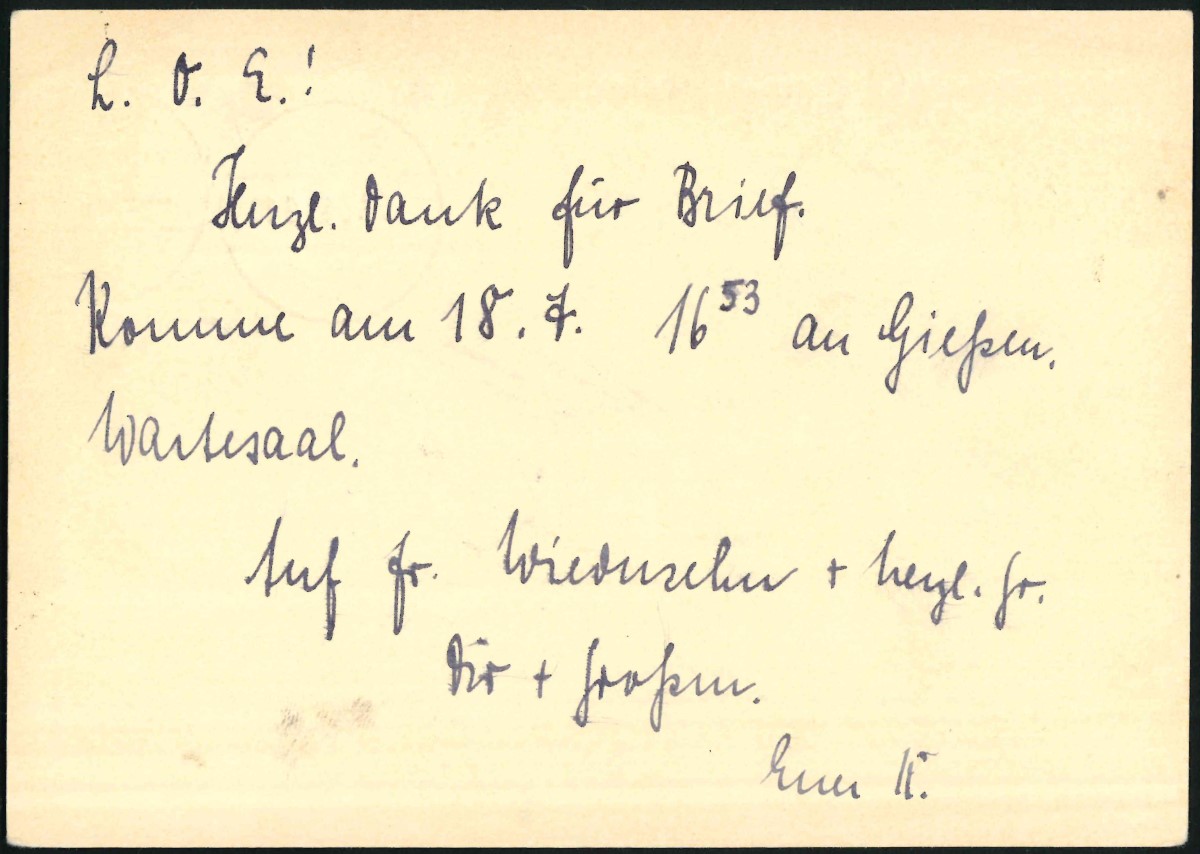 L. O. E.!
Herzl. Dank für Brief.
Komme am 18. 7. 16⁵³ an Gießen.
Wartesaal.
Auf fr. Wiedersehn + herzl. Gr.
Dir + Großen.
Euer K.